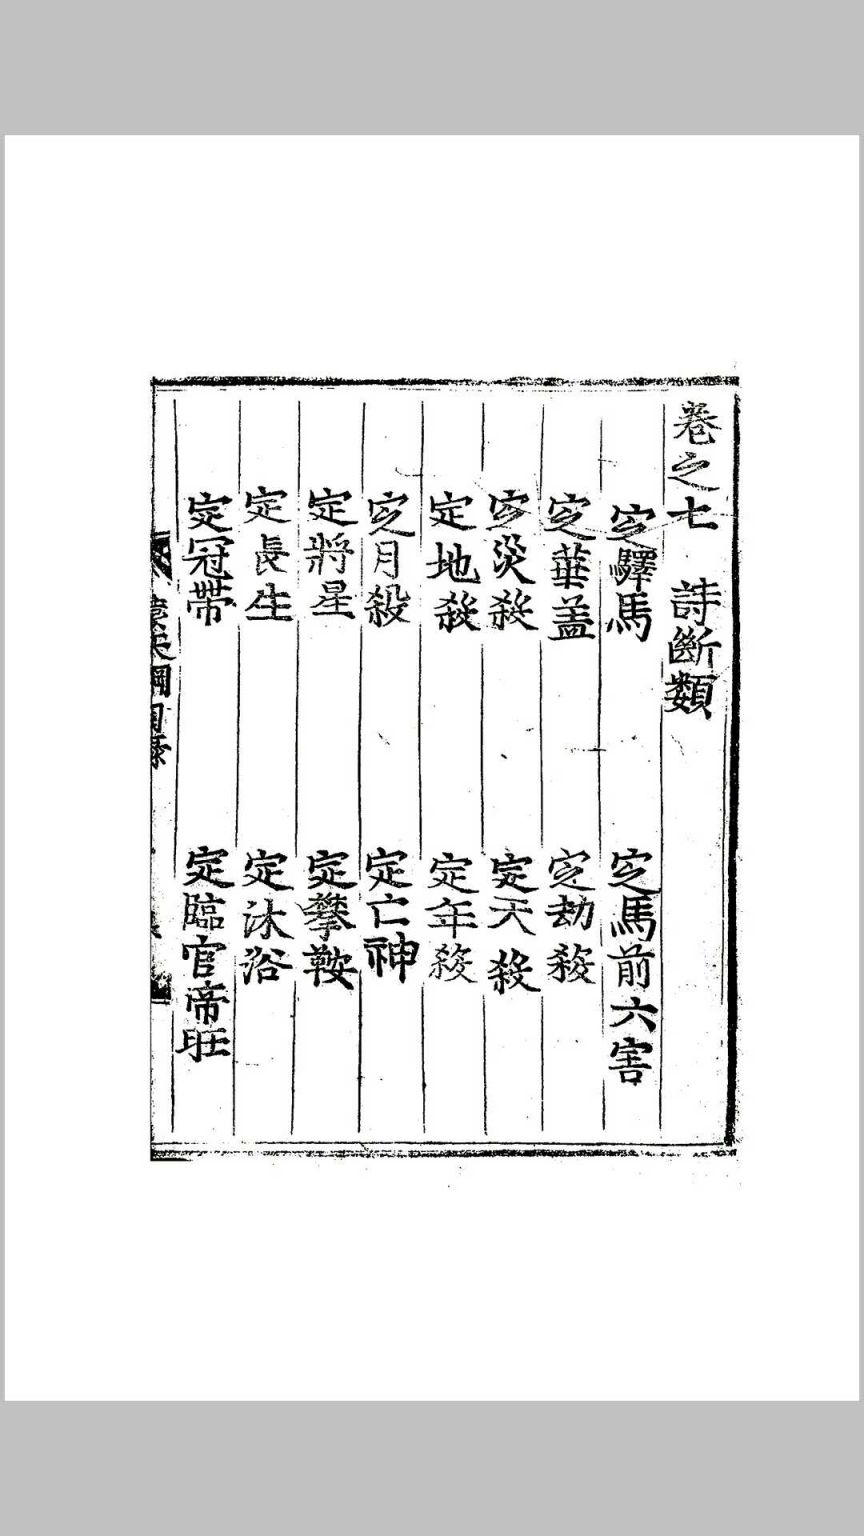 卷之七　詩斷類
定驛馬　定馬前六害
定華盖　定劫殺
定災殺　定天殺
定地殺　定年殺
定月殺　定亡神
定將星　定攀鞍
定長生　定沐浴
定冠帶　定臨官帝旺
天綱目錄